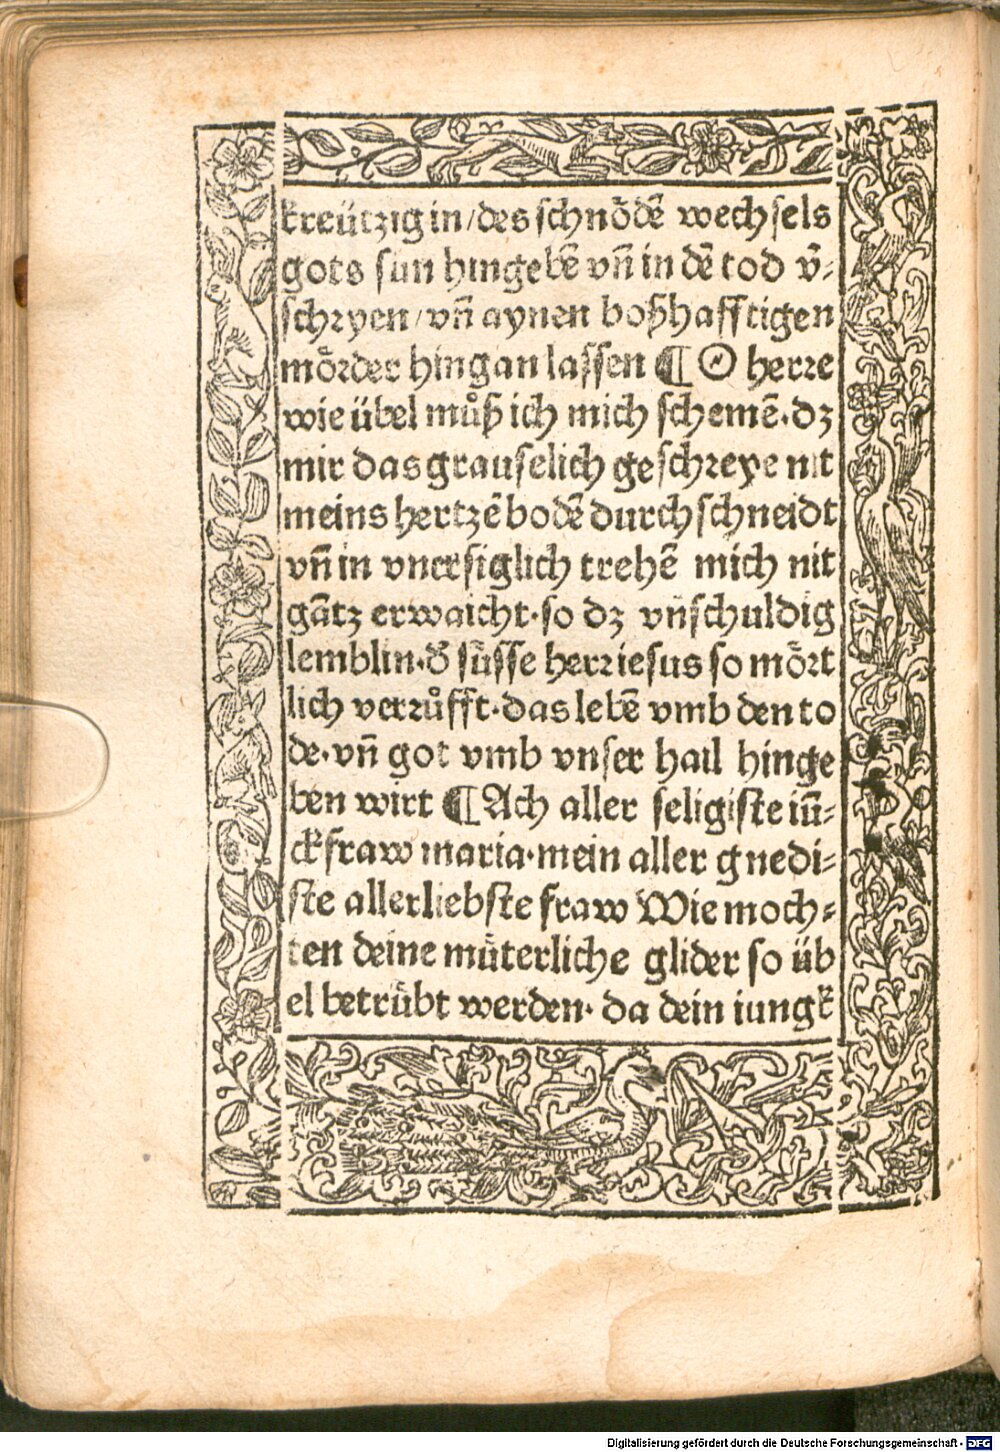 kreützig in/des schnödē wechsels
gots sun hingebē vn̄ in dē tod v̄⸗
schryen/vn̄ aynen boßhafftigen
mörder hingan lassen ¶ O herre
wie übel můß ich mich schemē.dz
mir das grauselich geschreye nit
meins hertzē bodē durchschneidt
vn̄ in vnersiglich trehē mich nit
gātz erwaicht.so dz vnschuldig
lemblin.d' süsse herr iesus so mört
lich verrůfft.das lebē vmb den to
de.vn̄ got vmb vnser hail hinge
ben wirt ¶ Ach aller seligiste iū⸗
ckfraw maria.mein aller gnedi⸗
ste allerliebste fraw Wie moch⸗
ten deine müterliche glider so üb
el betrübt werden. da dein iungk
Digitalisierung gefördert durch die Deutsche Forschungsgemeinschaft - DFG